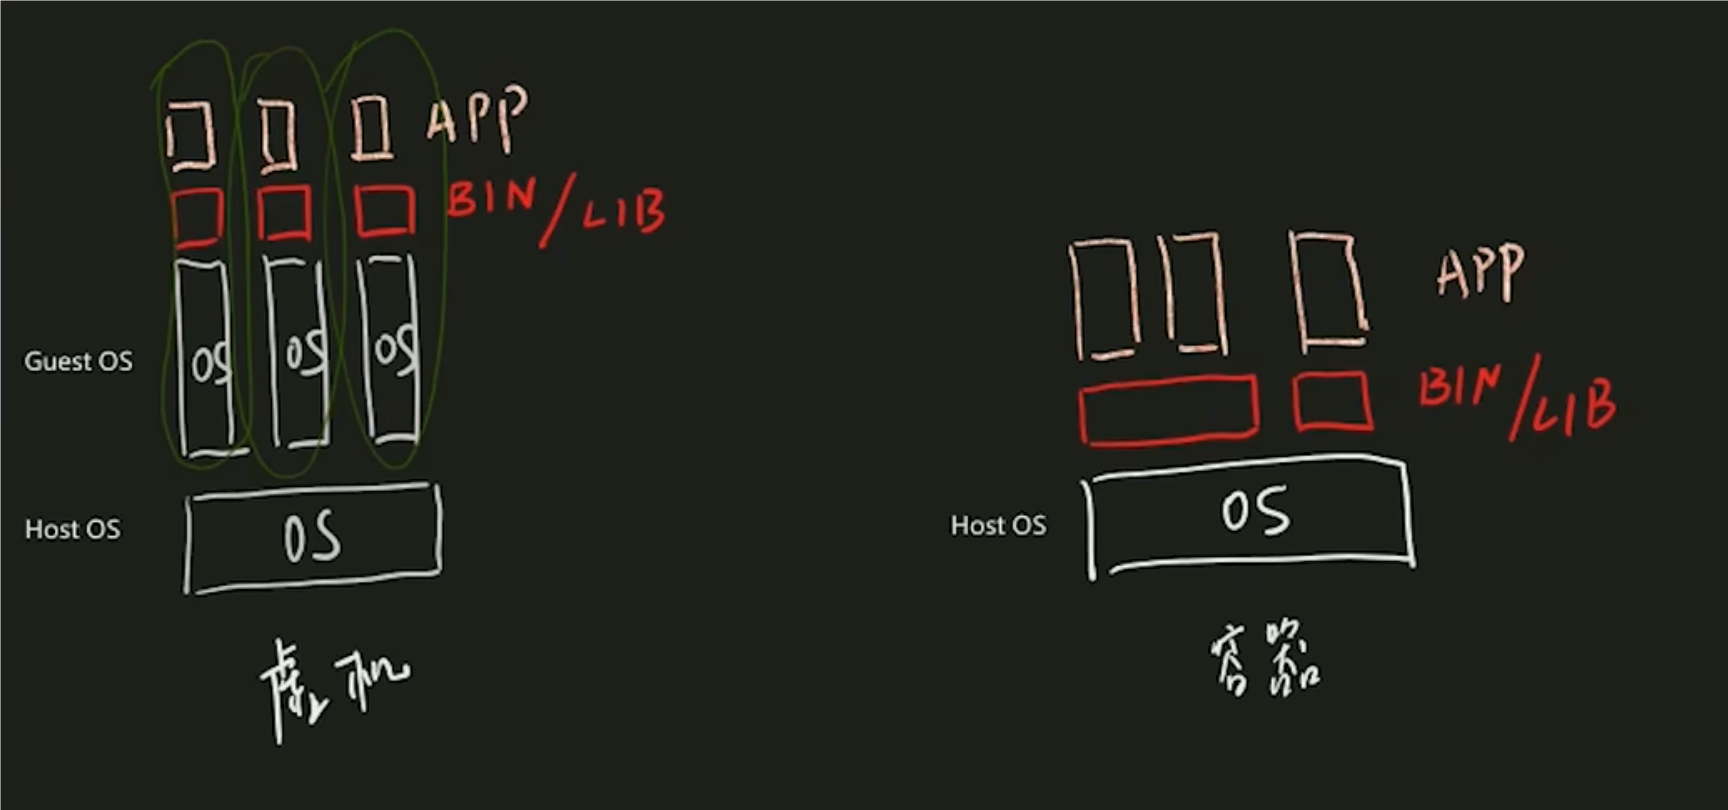 APP
BIN/LIB
Guest OS
OS
OS
OS
Host OS
OS
虚机
APP
BIN/LIB
Host OS
OS
容器